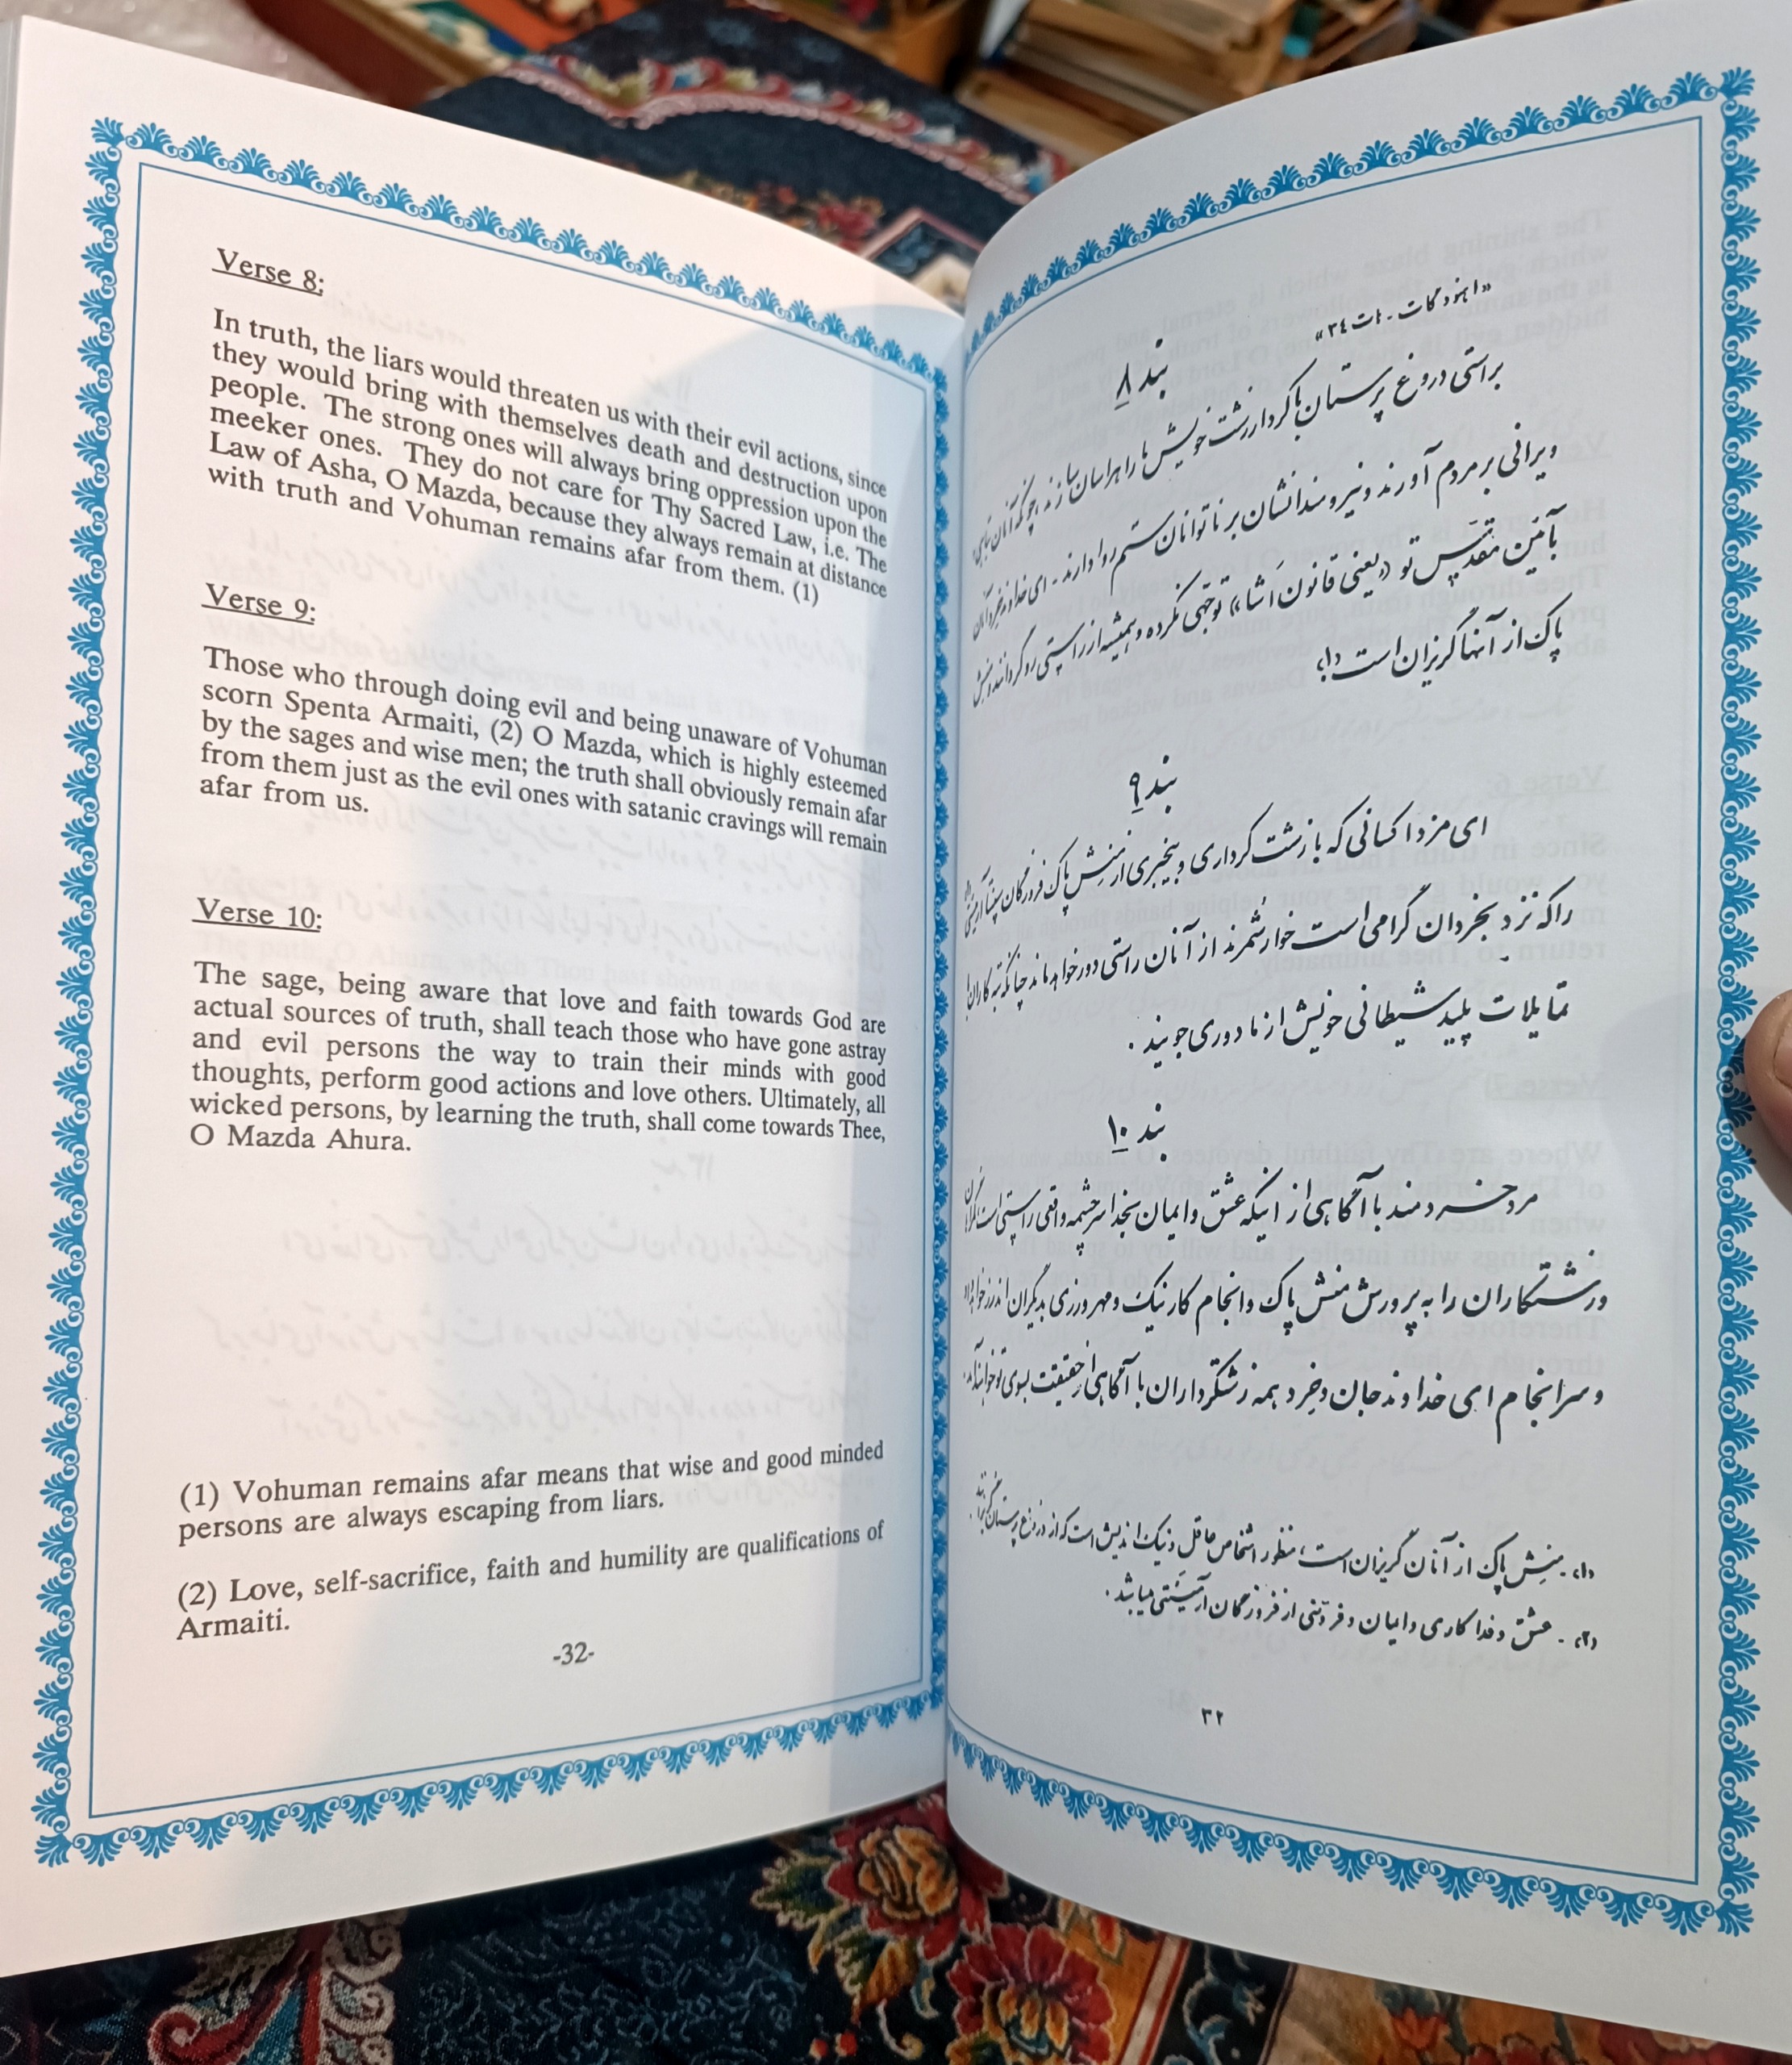 Verse 8:
In truth, the liars would threaten us with their evil actions, since
they would bring with themselves death and destruction upon
people. The strong ones will always bring oppression upon the
meeker ones. They do not care for Thy Sacred Law, i.e. The
Law of Asha, O Mazda, because they always remain at distance
with truth and Vohuman remains afar from them. (1)
Verse 9:
Those who through doing evil and being unaware of Vohuman
scorn Spenta Armaiti, (2) O Mazda, which is highly esteemed
by the sages and wise men; the truth shall obviously remain afar
from them just as the evil ones with satanic cravings will remain
afar from us.
Verse 10:
The sage, being aware that love and faith towards God are
actual sources of truth, shall teach those who have gone astray
and evil persons the way to train their minds with good
thoughts, perform good actions and love others. Ultimately, all
wicked persons, by learning the truth, shall come towards Thee,
O Mazda Ahura.
(1) Vohuman remains afar means that wise and good minded
persons are always escaping from liars.
(2) Love, self-sacrifice, faith and humility are qualifications of
Armaiti.
-32-
«اهنود گات - هات ۳٤»
بند ۸
براستی دروغ پرستان با کردار زشت خویش ما را هراسان سازند چونکه آنان تباهی و
ویرانی بر مردم آورند و نیرومندانشان بر ناتوانان ستم روا دارند - ای خداوند خرد آنان
بآئین مقدس تو «یعنی قانون اَشا» توجهی نکرده و همیشه از راستی رو گردانند منش
پاک از آنها گریزان است (۱)
بند ۹
ای مزدا کسانی که با زشت کرداری و بیخبری از منش پاک فروزگان سپنتا آرمیتی (۲)
را که نزد بخردان گرامی است خوار شمرند از آنان راستی دور خواهد ماند چنانکه تبه کاران با
تمایلات پلید شیطانی خویش از ما دوری جویند .
بند ۱۰
مرد خردمند با آگاهی از اینکه عشق و ایمان بخدا سرچشمه واقعی راستی است گمراهان
و زشتکاران را به پرورش منش پاک و انجام کار نیک و مهر ورزی بدیگران اندرز خواهد داد
و سرانجام ای خداوند جان و خرد همه زشتکرداران با آگاهی از حقیقت بسوی تو خواهند آمد.
(۱) - منش پاک از آنان گریزان است ، منظور اشخاص عاقل و نیک اندیش است که از دروغ پرستان گریزانند .
(۲) - عشق و فداکاری و ایمان و فروتنی از فروزگان آرمئیتی میباشد .
۳۲